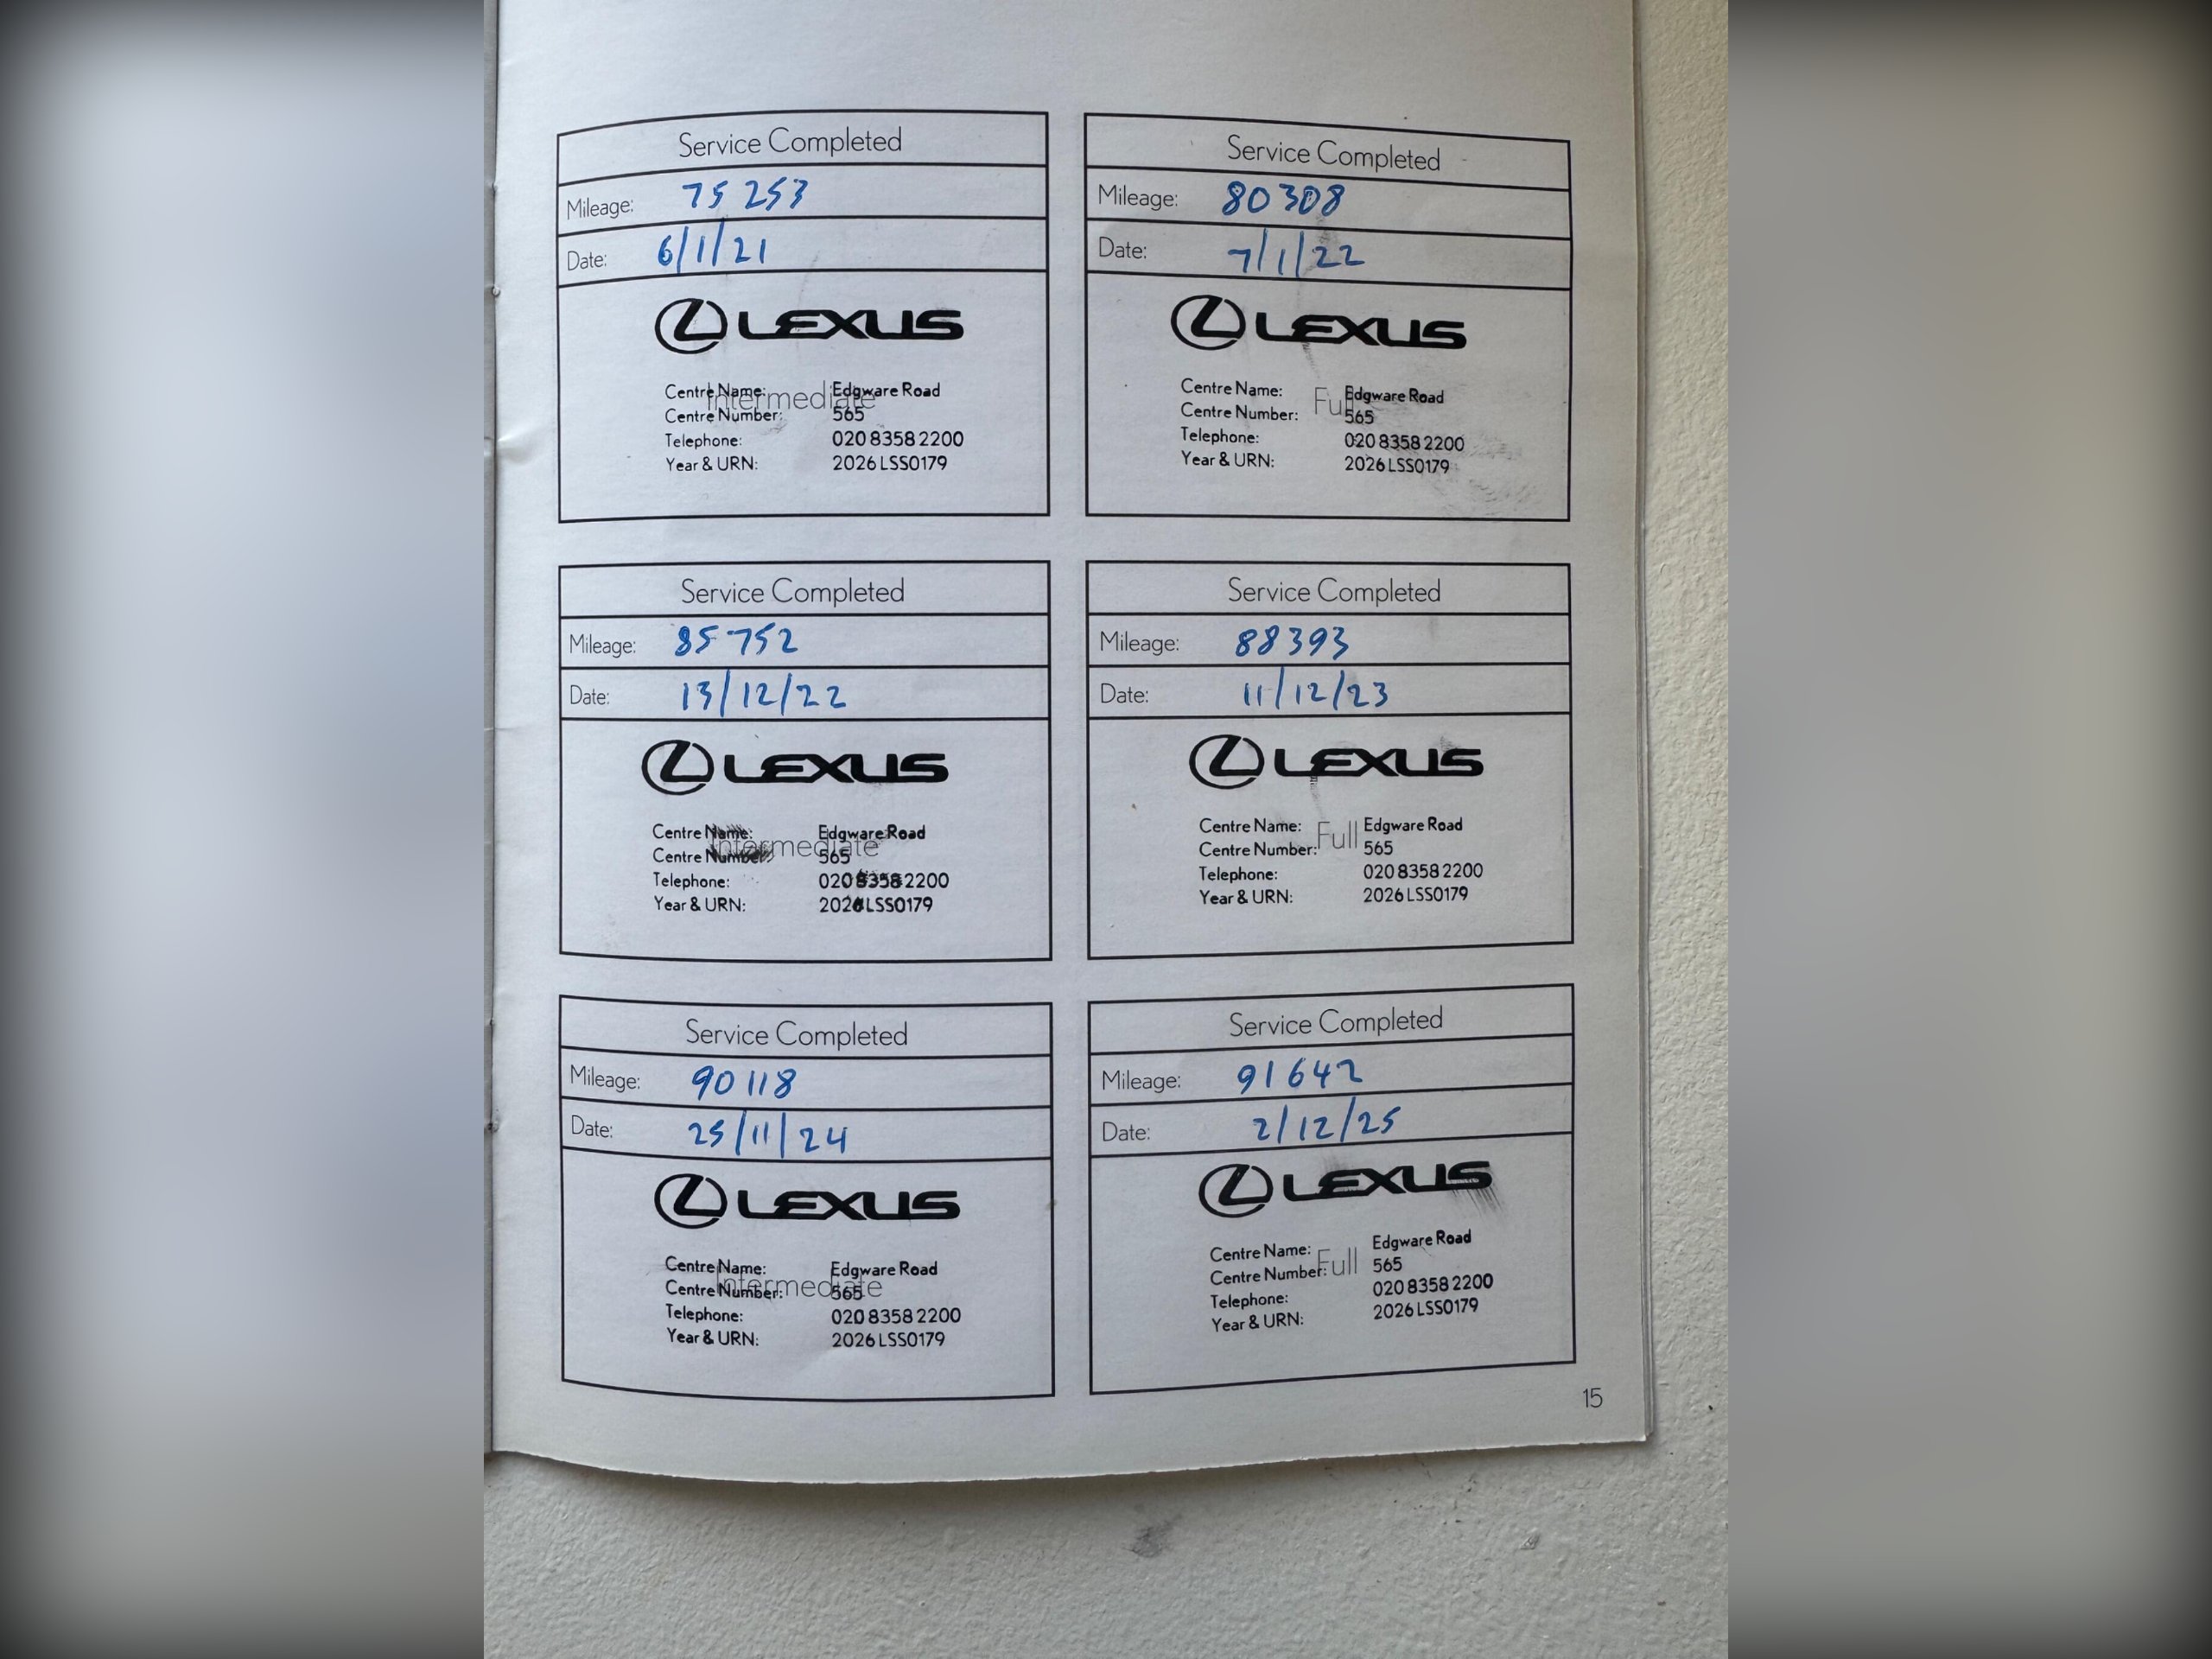 Service Completed
Mileage: 75 253
Date: 6/1/21
LEXUS
Intermediate
Centre Name: Edgware Road
Centre Number: 565
Telephone: 020 8358 2200
Year & URN: 2026 LSS0179
Service Completed
Mileage: 80308
Date: 7/1/22
LEXUS
Full
Centre Name: Edgware Road
Centre Number: 565
Telephone: 020 8358 2200
Year & URN: 2026 LSS0179
Service Completed
Mileage: 85 752
Date: 13/12/22
LEXUS
Intermediate
Centre Name: Edgware Road
Centre Number: 565
Telephone: 020 8358 2200
Year & URN: 2026 LSS0179
Service Completed
Mileage: 88393
Date: 11/12/23
LEXUS
Full
Centre Name: Edgware Road
Centre Number: 565
Telephone: 020 8358 2200
Year & URN: 2026 LSS0179
Service Completed
Mileage: 90 118
Date: 25/11/24
LEXUS
Intermediate
Centre Name: Edgware Road
Centre Number: 565
Telephone: 020 8358 2200
Year & URN: 2026 LSS0179
Service Completed
Mileage: 91642
Date: 2/12/25
LEXUS
Full
Centre Name: Edgware Road
Centre Number: 565
Telephone: 020 8358 2200
Year & URN: 2026 LSS0179
15